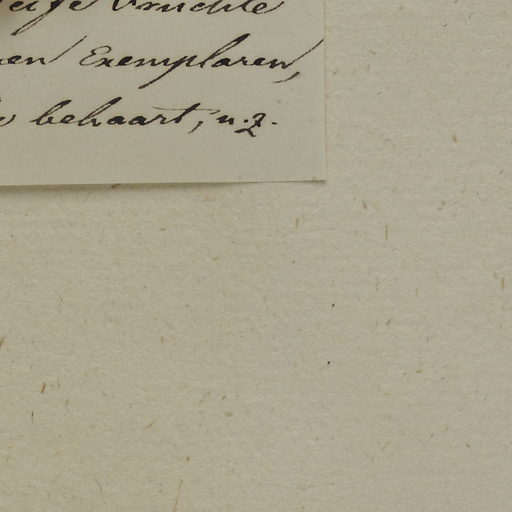 Früchte
en Exemplaren,
behaart, u. z.